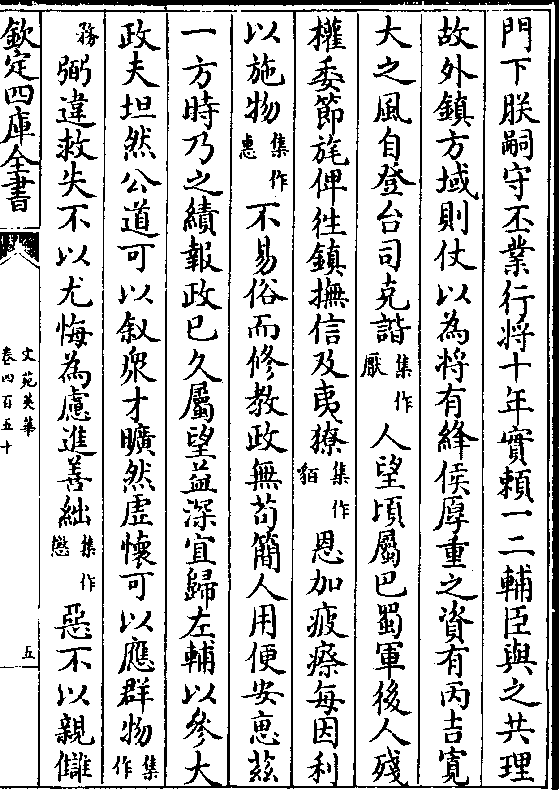 門下朕嗣守丕業行將十年實賴一二輔臣與之共理
故外鎮方域則仗以為將有絳侯厚重之資有丙吉寬
大之風自登台司克諧集作厭人望頃屬巴蜀軍後人殘
權委節旄俾往鎮撫信及夷獠集作貊恩加疲瘵每因利
以施物集作惠不易俗而修教政無苟簡人用便安惠茲
一方時乃之績報政已久屬望益深宜歸左輔以參大
政夫坦然公道可以叙衆才曠然虛懷可以應群物集作
務弼違救失不以尤悔為慮進善絀集作懲惡不以親讎
欽定四庫全書
文苑英華
卷四百五十
五